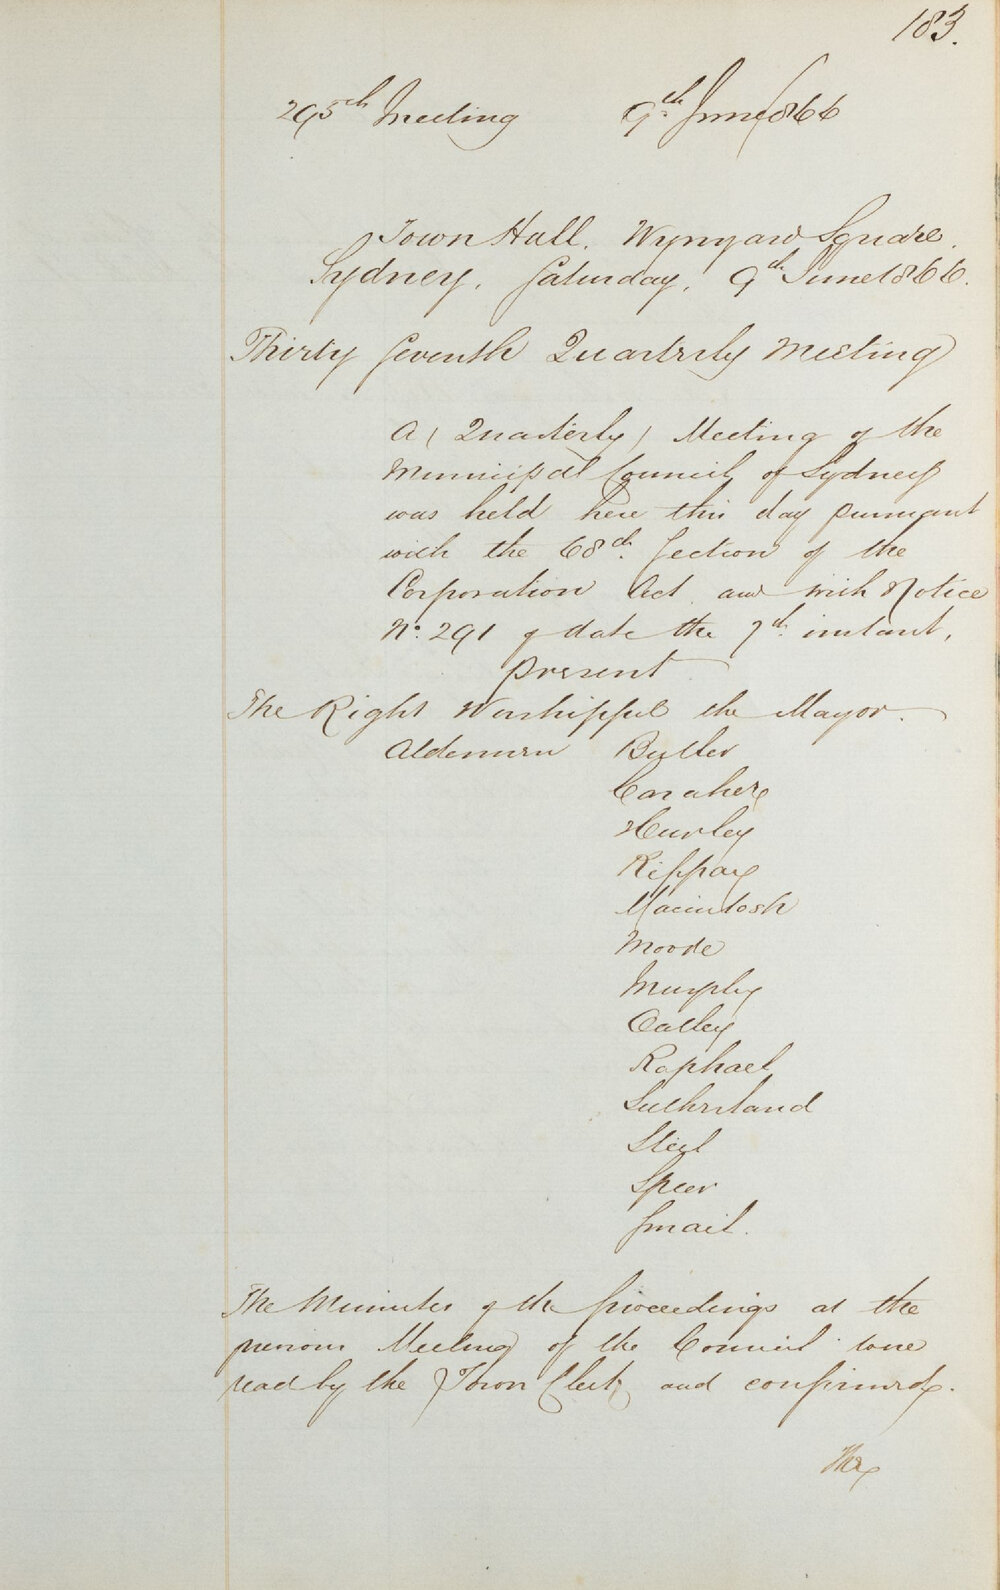 183.
295th Meeting 9th June 1866
Town Hall. Wynyard Square.
Sydney. Saturday. 9th June 1866.
Thirty Seventh Quarterly Meeting
A (Quarterly) Meeting of the
Municipal Council of Sydney
was held here this day pursuant
with the 68th. Section of the
Corporation Act and with Notice
No. 291 of date the 7th. instant.
present
The Right Worshipful the Mayor.
Aldermen Butler
Caraher
Hurley
Kippax
Macintosh
Moore
Murphy
Oatley
Raphael
Sutherland
Steel
Speer
Smail.
The Minutes of the proceedings at the
previous Meeting of the Council were
read by the Town Clerk and confirmed.
The